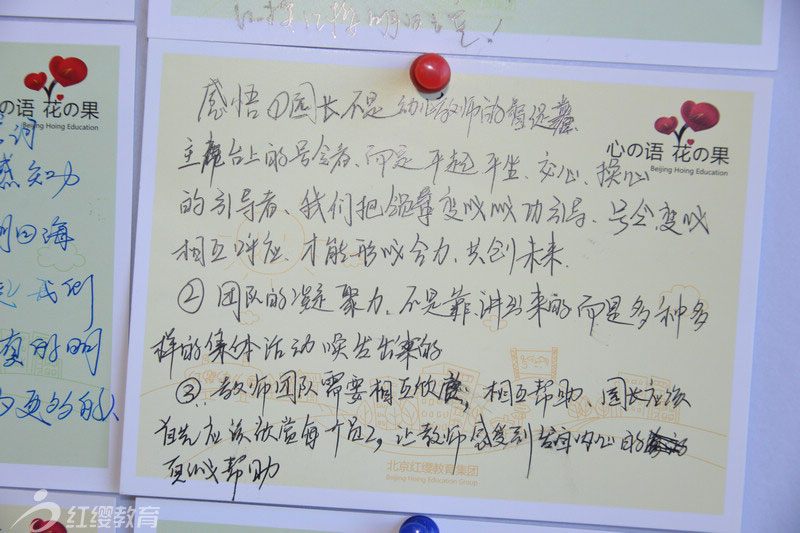 红操红操明日之星!
心の语 花の果
Beijing Hoing Education
词
感知力
四海
我们
有的明
更多的人
心の语 花の果
Beijing Hoing Education
感悟①园长不是幼儿教师的
主席台上的号令者、而是平起平坐、交心、操心
的引导者、我们把领导变成成功引导、号令变成
相互呼应、才能形成合力、共创未来.
②团队的凝聚力、不是靠讲出来的而是多种多
样的集体活动焕发出来的
③、教师团队需要相互欣赏;相互帮助、园长应该
首先应该欣赏每个员工,让教师感受到发自内心的
真诚帮助
北京红缨教育集团
Beijing Hoing Education Group
红缨教育